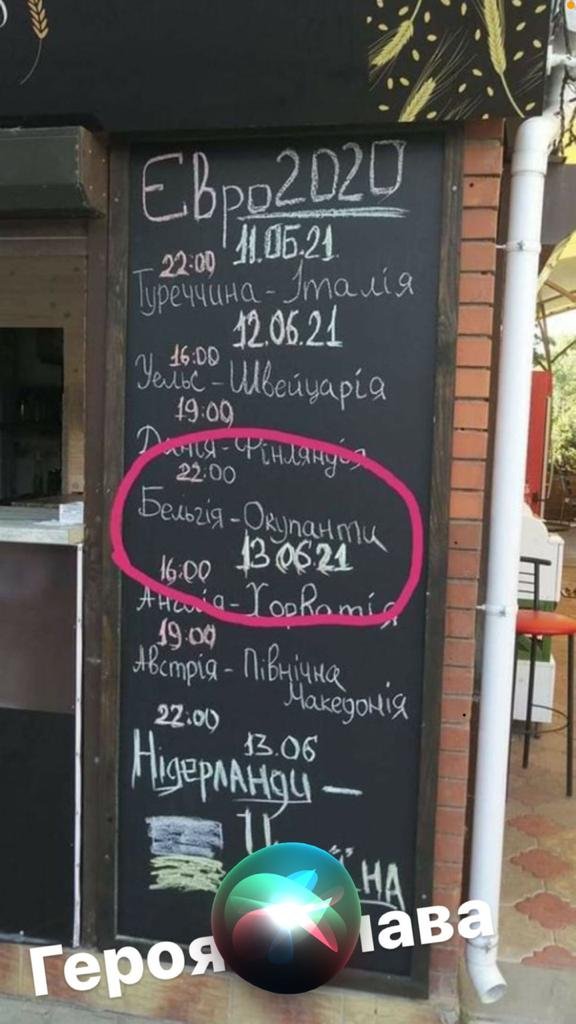 Євро2020
11.06.21
22:00
Туреччина - Італія
12.06.21
16:00
Уельс - Швейцарія
19:00
Данія - Фінляндія
22:00
Бельгія - Окупанти
13.06.21
16:00
Англія - Хорватія
19:00
Австрія - Північна
Македонія
22:00
13.06
Нідерланди -